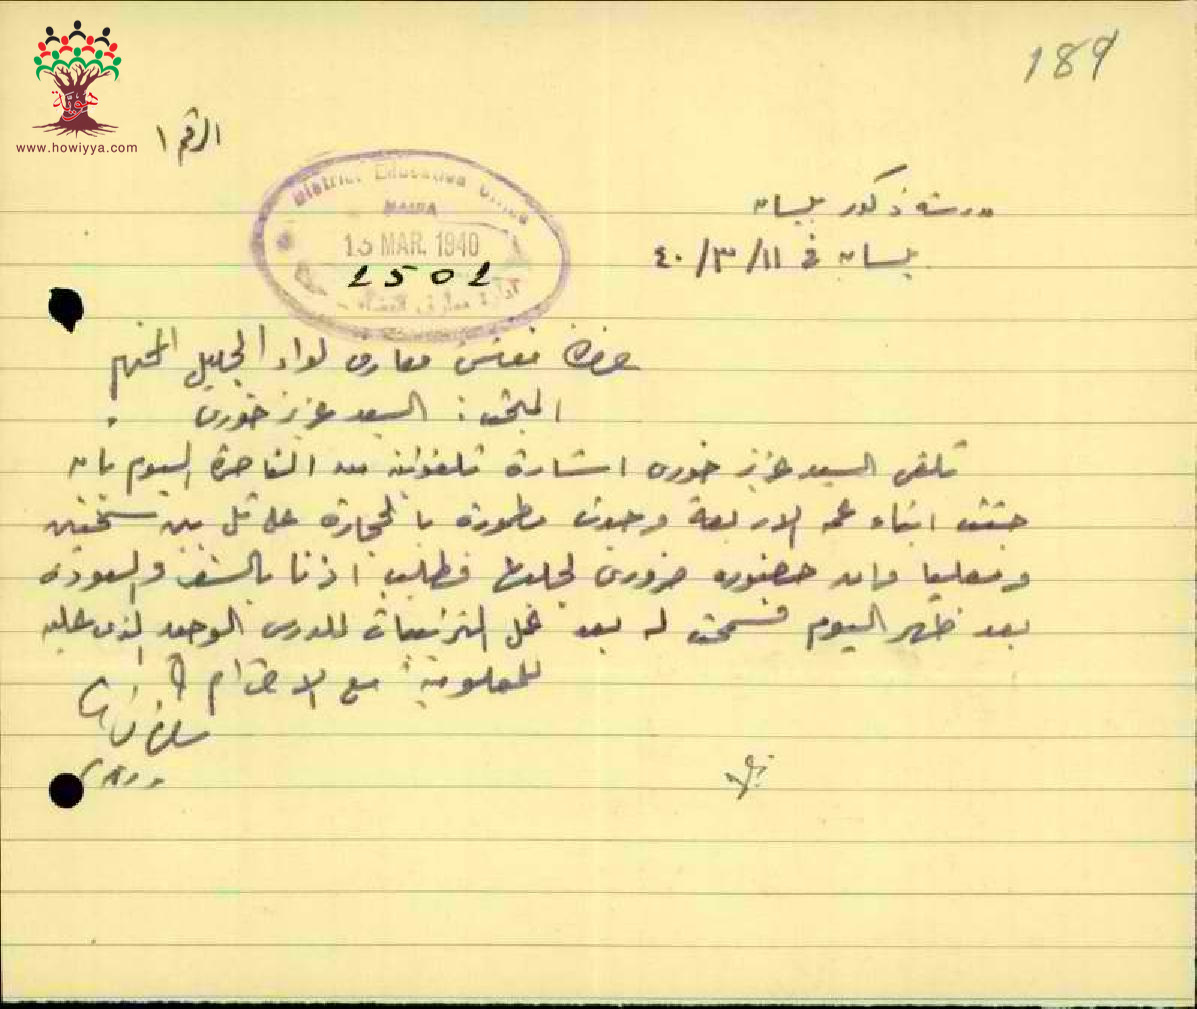 189
هوية
www.howiyya.com
الرقم ١
District Education Office
HAIFA
13 MAR. 1940
1501
مدرسة ذكور بيسان
بيسان في ١١/٣/٤٠
حضرة مفتش معارف لواء الجليل المحترم
المبحث: السيد عزيز خوري
تلقى السيد عزيز خوري اشارة تلفونية من الناصرة اليوم بان
جثث ابناء عمه الاربعة وجدت مطمورة بالحجارة على تل بين سخنين
ومعليا وان حضوره ضروري لجلبها فطلب اذنا بالسفر والعودة
بعد ظهر اليوم فسمحت له بعد عمل الترتيبات للدرس الوحيد الذي عليه
للمعلومية مع الاحترام